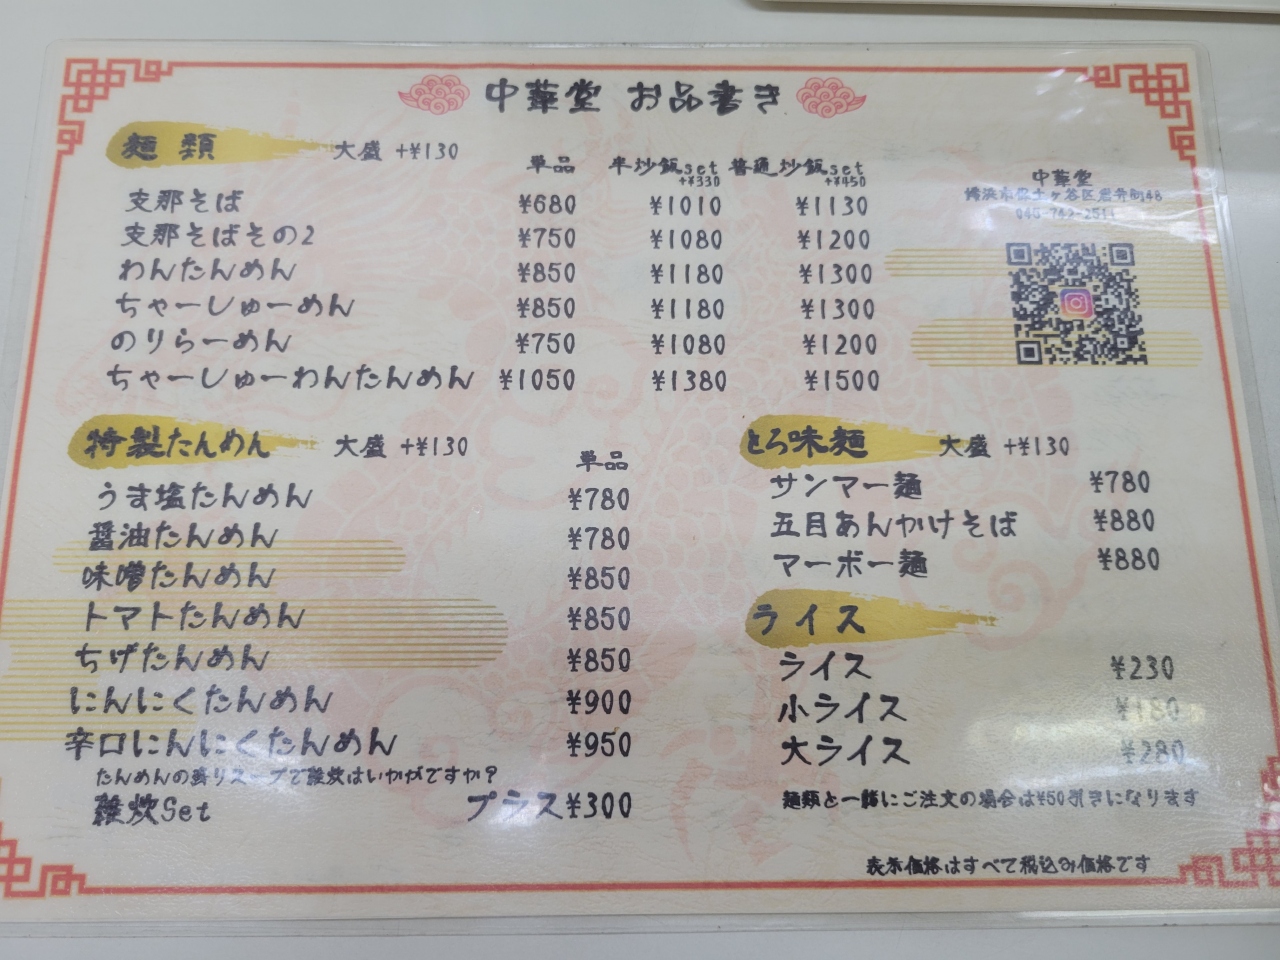 中華堂 お品書き
麺類 大盛 +¥130
単品 半炒飯set +¥330 普通炒飯set +¥450
支那そば ¥680 ¥1010 ¥1130
支那そばその2 ¥750 ¥1080 ¥1200
わんたんめん ¥850 ¥1180 ¥1300
ちゃーしゅーめん ¥850 ¥1180 ¥1300
のりらーめん ¥750 ¥1080 ¥1200
ちゃーしゅーわんたんめん ¥1050 ¥1380 ¥1500
中華堂
横浜市保土ヶ谷区岩井町48
特製たんめん 大盛 +¥130
単品
うま塩たんめん ¥780
醤油たんめん ¥780
味噌たんめん ¥850
トマトたんめん ¥850
ちげたんめん ¥850
にんにくたんめん ¥900
辛口にんにくたんめん ¥950
たんめんの残りスープで雑炊はいかがですか?
雑炊Set プラス¥300
とろ味麺 大盛 +¥130
サンマー麺 ¥780
五目あんかけそば ¥880
マーボー麺 ¥880
ライス
ライス ¥230
小ライス ¥180
大ライス ¥280
麺類と一緒にご注文の場合は¥50引きになります
表示価格はすべて税込み価格です